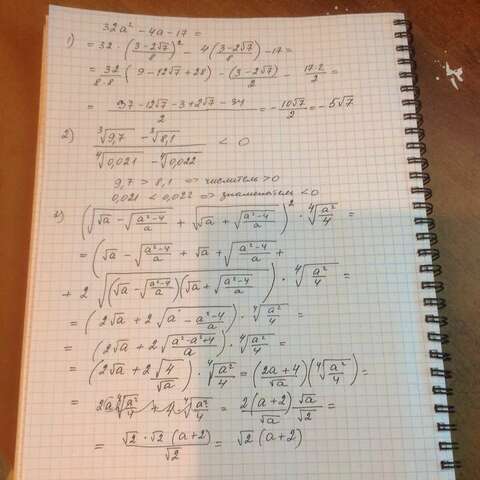 1) 32a² - 4a - 17 =
= 32 · ((3-2√7)/8)² - 4((3-2√7)/8) - 17 =
= 32/(8·8) (9 - 12√7 + 28) - (3-2√7)/2 - 17·2/2 =
= (37 - 12√7 - 3 + 2√7 - 34)/2 = - 10√7/2 = - 5√7
2) (∛9,7 - ∛8,1)/(∜0,021 - ∜0,022) < 0
9,7 > 8,1 => числитель > 0
0,021 < 0,022 => знаменатель < 0
3) (√(√a - √((a²-4)/a)) + √(√a + √((a²-4)/a)))² · ∜(a²/4) =
= (√a - √((a²-4)/a) + √a + √((a²-4)/a) +
+ 2 √((√a - √((a²-4)/a))(√a + √((a²-4)/a)))) · ∜(a²/4) =
= (2√a + 2√(a - (a²-4)/a)) · ∜(a²/4) =
= (2√a + 2√((a²-a²+4)/a)) · ∜(a²/4) =
= (2√a + 2√4/√a) · ∜(a²/4) = ((2a+4)/√a)(∜(a²/4)) =
= 2(a+2)/√a · √a/√2 =
= √2·√2(a+2)/√2 = √2(a+2)